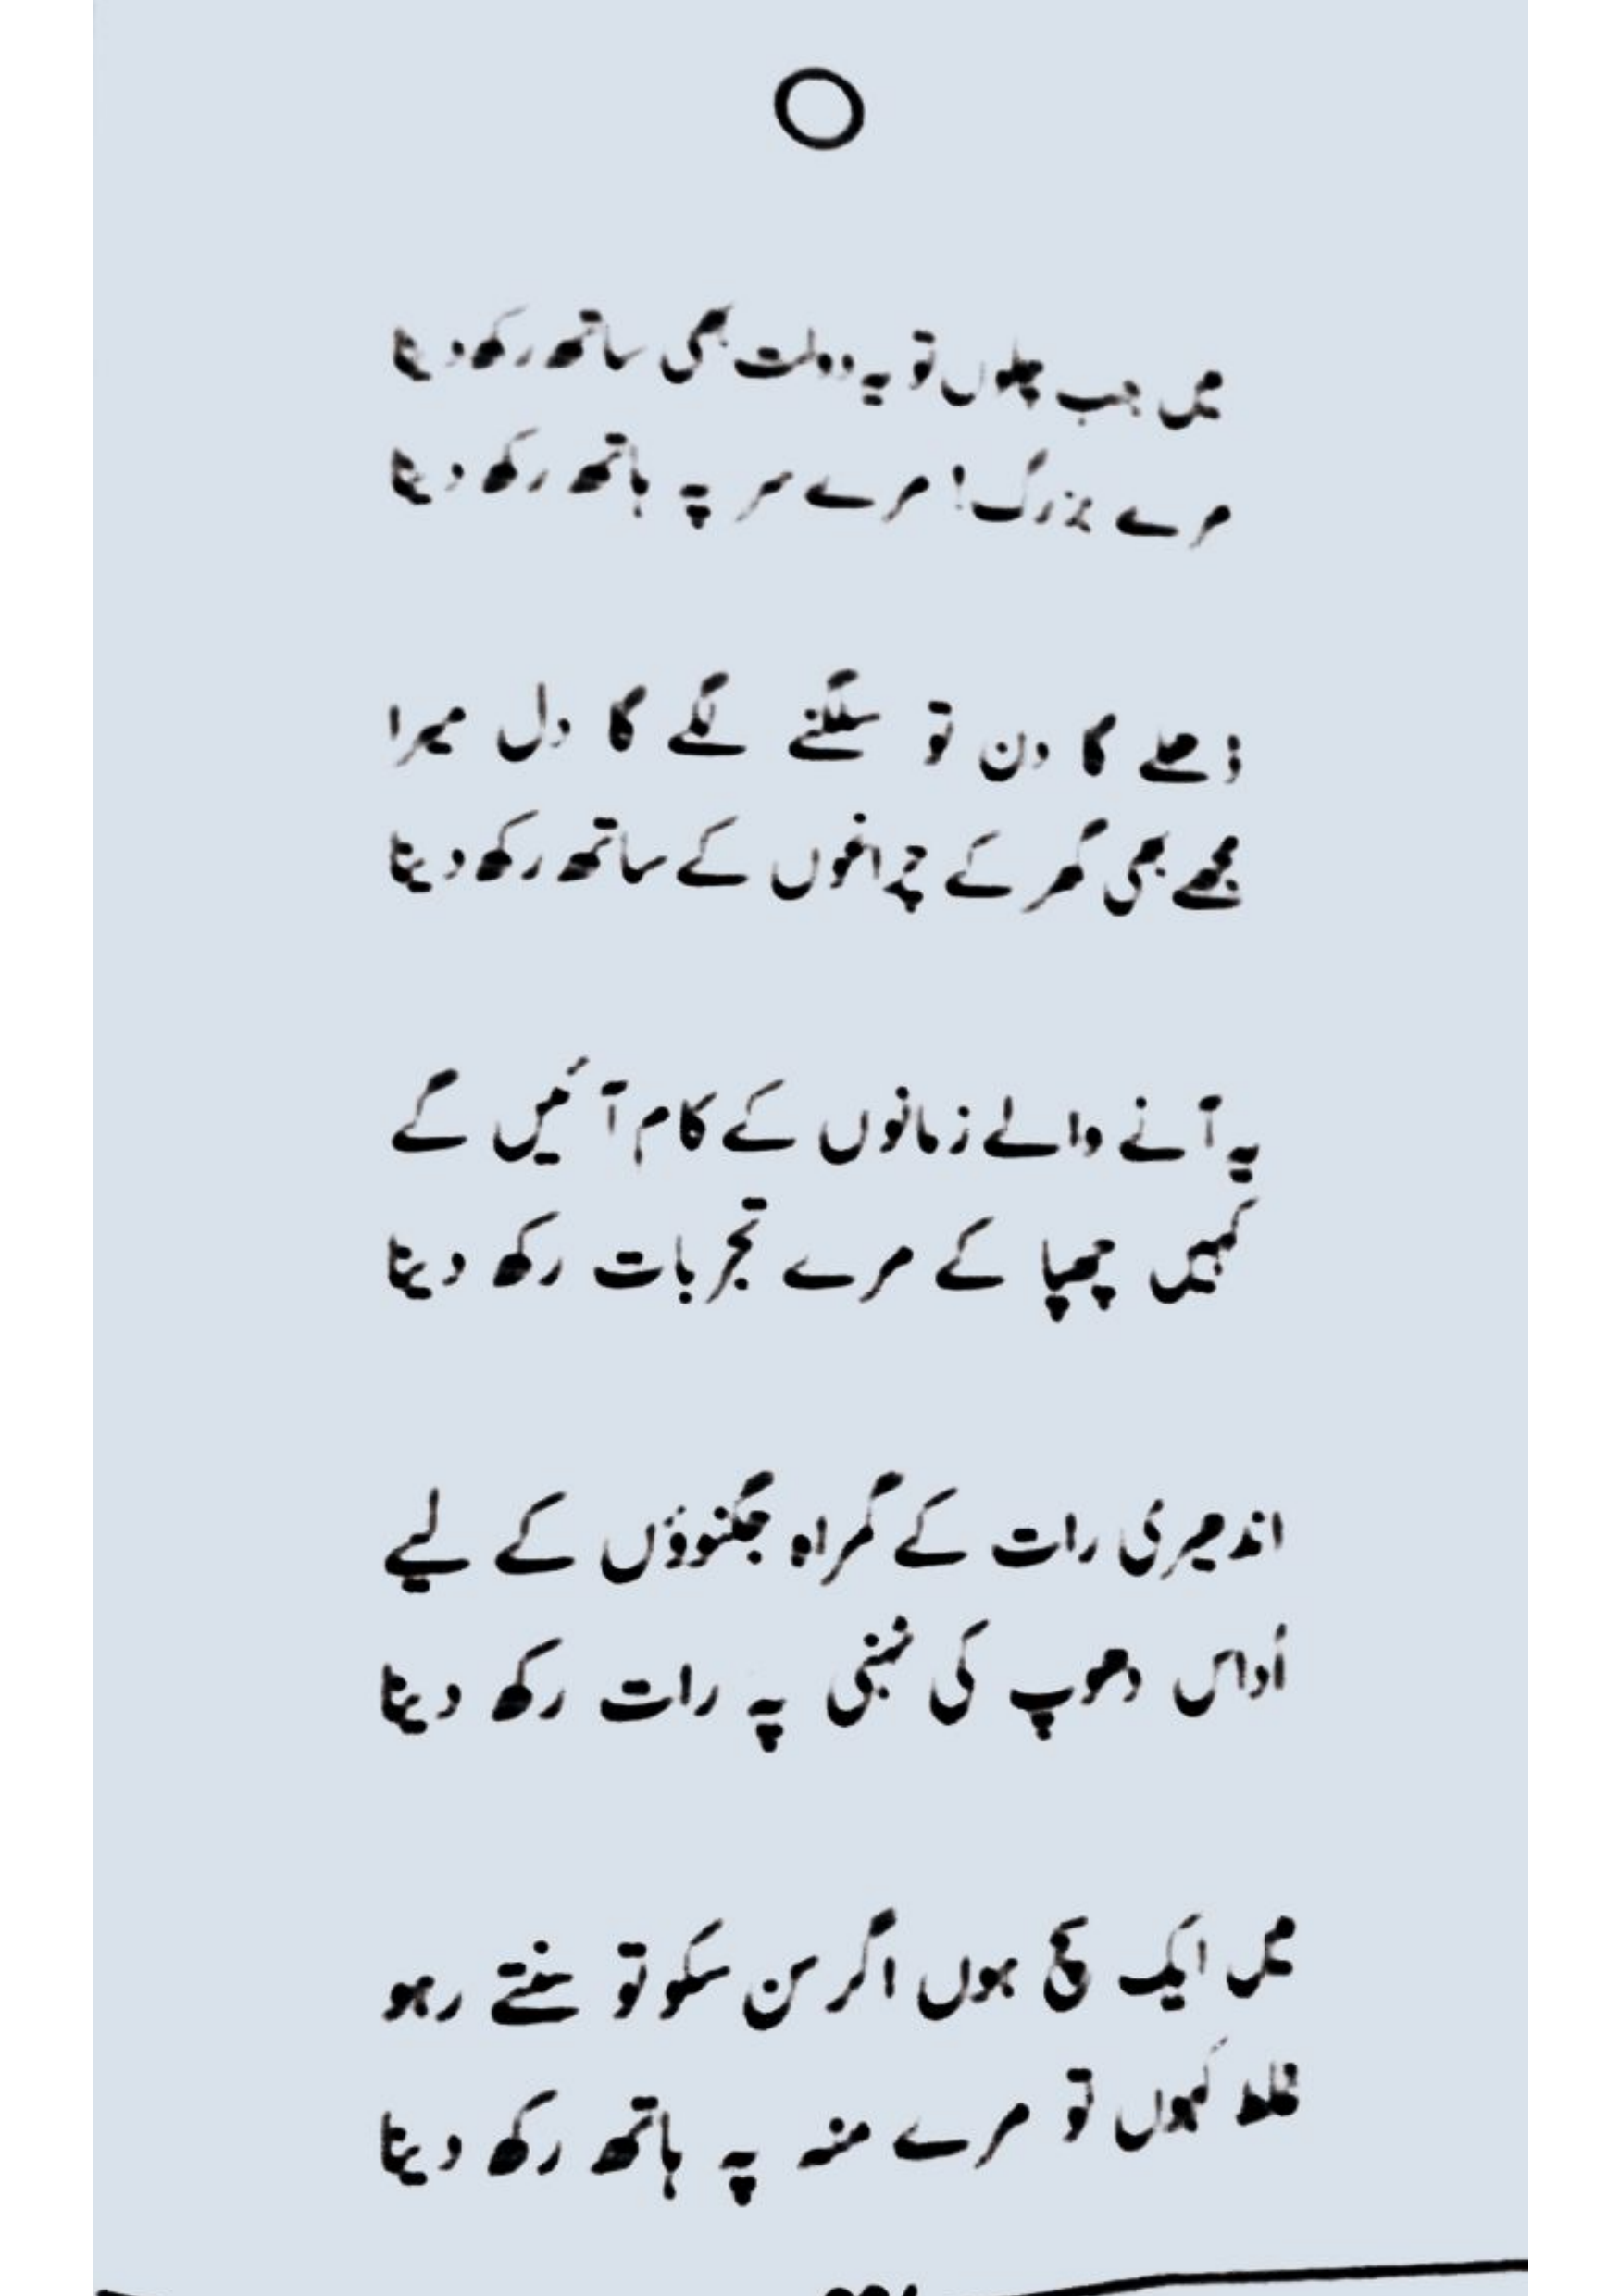 میں جب چلوں تو یہ دولت بھی ساتھ رکھ دینا
مرے بزرگ! مرے سر پہ ہاتھ رکھ دینا
ڈھلے گا دن تو سلگنے لگے گا دل میرا
مجھے بھی گھر کے چراغوں کے ساتھ رکھ دینا
یہ آنے والے زمانوں کے کام آئیں گے
کہیں چھپا کے مرے تجربات رکھ دینا
اندھیری رات کے گمراہ جگنوؤں کے لیے
اُداس دھوپ کی ٹہنی پہ رات رکھ دینا
میں ایک سچ ہوں اگر سن سکو تو سنتے رہو
غلط کہوں تو مرے منہ پہ ہاتھ رکھ دینا